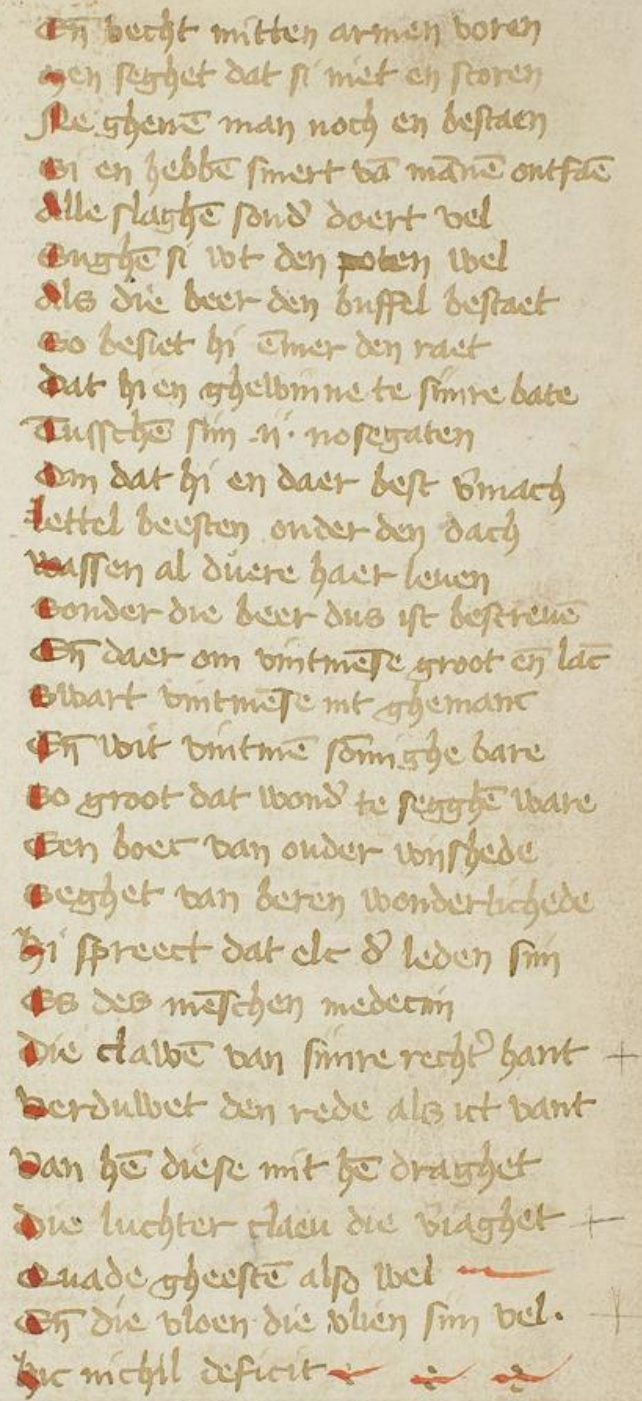 En̄ vecht mitten armen voren
Men seghet dat si niet en scoren
Ne ghenē man noch en bestaen
Si en hebbē smert vā mānē ontfaē
Alle slaghē sond' doert vel
Sughē si wt den poten wel
Als die beer den buffel bestaet
So besiet hi ēmer den raet
Dat hi en ghewinne te sinre bate
Tusschē sijn .ij. nosegaten
Om dat hi en daer best v'mach
Lettel beesten onder den dach
Wassen al duere haer leuen
Sonder die beer dus ist bescreuē
En̄ daer om vintmēse groot en̄ lāc
Swart vintmēse int ghemanc
En̄ wit vintmē sōmighe bare
So groot dat wond' te segghē ware
Een boec van ouder wijshede
Seghet van beren wonderlichede
Hi spreect dat elc d' leden sijn
Es des mēschen medecijn
Die clawē van sinre recht' hant +
Verduwet den rede als ict vant
Van hē diese mit hē draghet
Die luchter claeu die v'iaghet +
Quade gheestē also wel
En̄ die vloen die vlien sijn vel. +
Hic nichil deficit